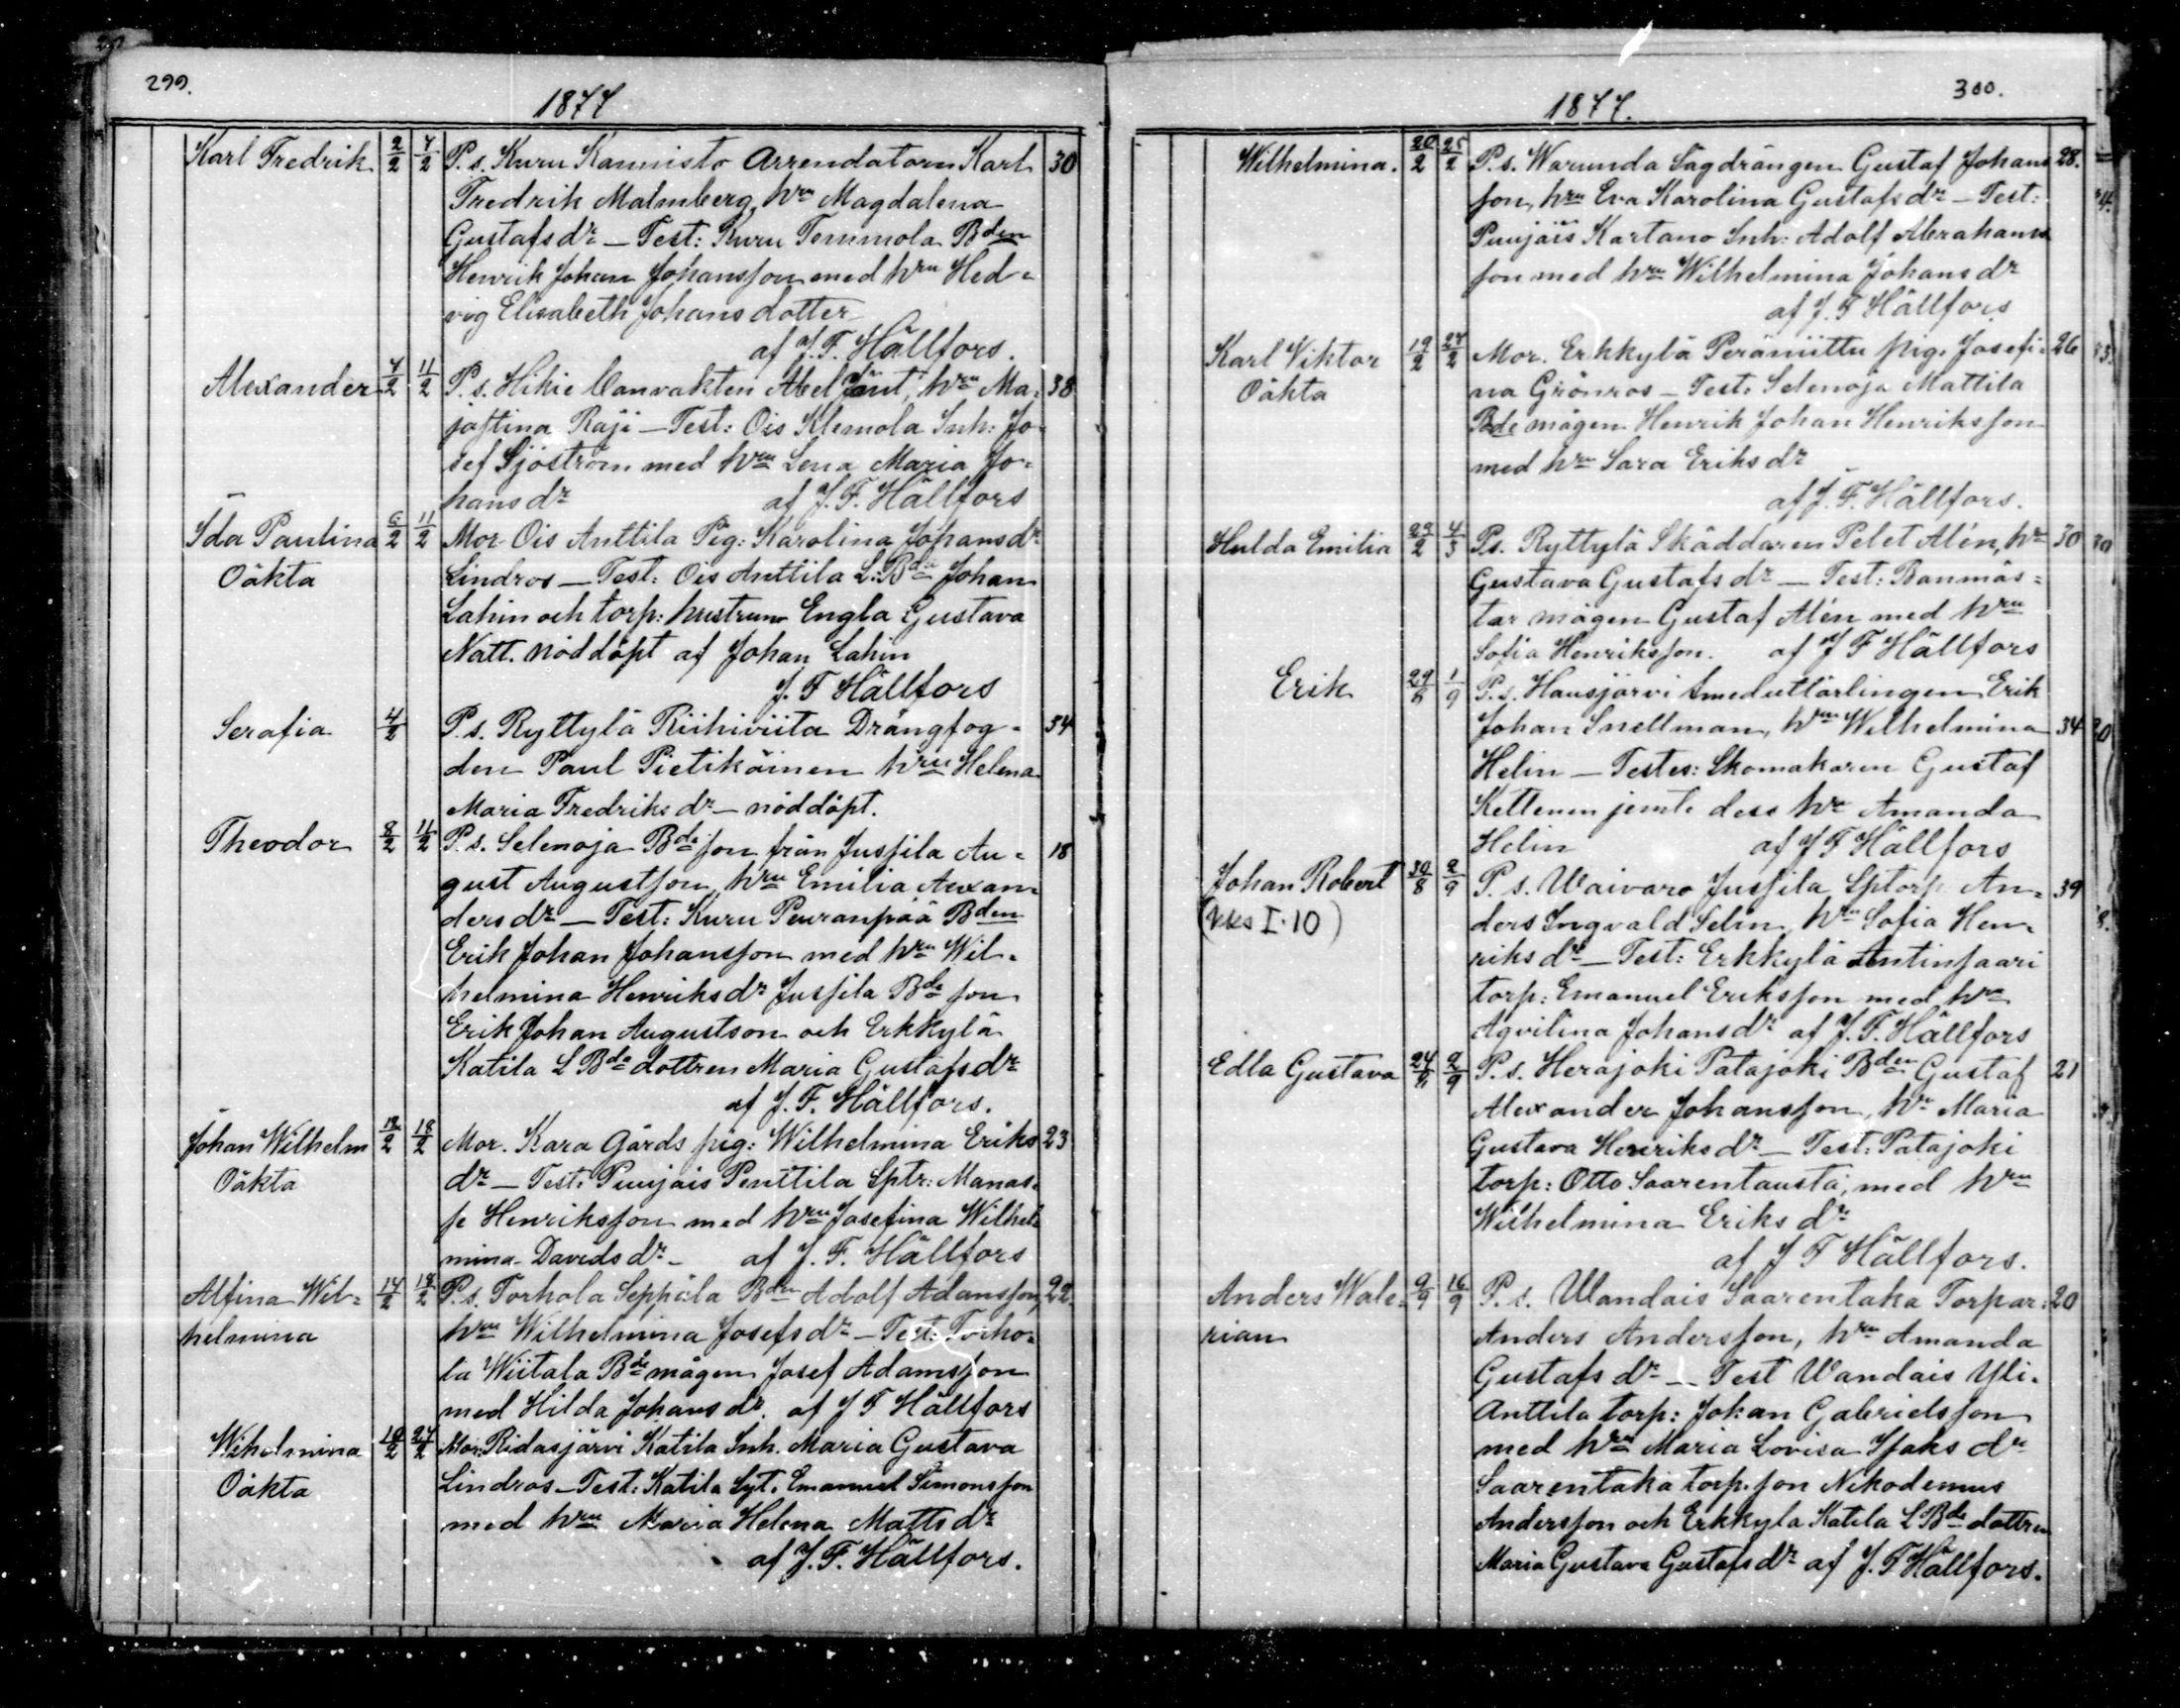 299.
1877
Karl Fredrik 2/2 4/2 P. s. Kuru Kannisto Arrendatorn Karl 30
Fredrik Malmberg, hru Magdalena
Gustafsdr – Test: Kuru Temmola Bden
Henrik Johan Johansson med hru Hed-
vig Elisabeth Johansdotter
af J. F. Hällfors.
Alexander 4/2 11/2 P. s. Hikie banvakten Abel hru Ma- 38
jastina Raji – Test: Ois Klemola Inh: Jo-
sef Sjöström med hru Lena Maria Jo-
hansdr af J. F. Hällfors
Ida Paulina 6/2 11/2 Mor Ois Anttila Pig: Karolina Johansdr
Oäkta Lindros – Test: Ois Anttila L: Bdn Johan
Lahin och torp: hustrun Engla Gustava
Natt. nöddöpt af Johan Lahin
J. F Hällfors
Serafia 4/2 P. s. Ryttylä Riihiviita Drängfog- 34
den Paul Pietikäinen hru Helena
Maria Fredriksdr – nöddöpt.
Theodor 8/2 11/2 P. s. Selenoja Bde son från Jussila Au- 18
gust Augustsson, hru Emilia Alexan-
dersdr – Test: Kuru Peuranpää Bden
Erik Johan Johansson med hru Wil-
helmina Henriksdr Jussila Bde son
Erik Johan Augustson och Erkkylä
Katila L Bde dottren Maria Gustafsdr
af J. F. Hällfors.
Johan Wilhelm 12/2 18/2 Mor. Kara Gårds pig: Wilhelmina Eriks 23
Oäkta dr – Test: Puujais Penttila Sptr: Manas-
se Henriksson med hru Josefina Wilhel-
mina Davidsdr – af J. F. Hällfors
Alfina Wil- 14/2 18/2 P. s. Torhola Seppälä Bdn Adolf Adamsson, 22.
helmina hru Wilhelmina Josefsdr – Test: Torho-
la Wiitala Bde mågen Josef Adamsson
med Hilda Johansdr. af J F Hällfors
Wihelmina 19/2 24/2 Mor: Ridasjärvi Katila Inh. Maria Gustava
Oäkta Lindros – Test: Katila Syt. Emanuel Simonsson
med hru Maria Helena Mattsdr
af J. F. Hällfors.
300.
1877.
Wilhelmina. 20/2 25/2 P. s. Warunda Sagdrängen Gustaf Johans 28.
son, hru Eva Karolina Gustafsdr – Test:
Puujais Kartano Inh: Adolf Abrahams
son med hru Wilhelmina Johansdr
af J. F Hällfors
Karl Viktor 19/2 24/2 Mor. Erkkylä Peräniittu pig. Josefi- 26
Oäkta na Grönros – Test: Selenoja Mattila
Bde mågen Henrik Johan Henriksson
med hru Sara Eriksdr
af J. F. Hällfors.
Hulda Emilia 23/2 4/3 P.s. Ryttylä Skäddaren Petet Alén, hr 30
Gustava Gustafsdr – Test: Banmäs-
tar mågen Gustaf Alén med hru
Sofia Henriksson. af J F Hällfors
Erik 29/8 1/9 P. s. Hausjärvi smedutlärlingen Erik
Johan Snellman, hru Wilhelmina 34
Helin – Testes: Skomakaren Gustaf
Kettenen jemte dess hr Amanda
Helin af J F Hällfors
Johan Robert 30/8 2/9 P. s. Waivaro Jussila Sptorp An- 39
(kks I.10) ders Ingvald Selin, hru Sofia Hen-
riksdr – Test: Erkkylä Antinsaari
torp: Emanuel Eriksson med hru
Aqvilina Johansdr af J. F. Hällfors
Edla Gustava 24/8 2/9 P. s. Herajoki Patajoki Bden Gustaf 21
Alexander Johansson, hr Maria
Gustava Henriksdr – Test: Patajoki
torp: Otto Saarentausta, med hru
Wilhelmina Eriksdr
af J F Hällfors.
Anders Wale- 9/9 16/9 P. s. Wandais Saarentaka Torpar: 20
rian Anders Andersson, hru Amanda
Gustafsdr – Test Wandais Yli-
Anttila torp: Johan Gabrielsson
med hru Maria Lovisa Isaksdr
Saarentaka torp. son Nikodemus
Andersson och Erkkyla Katila L Bde dottren
Maria Gustava Gustafsdr af J. F Hällfors.